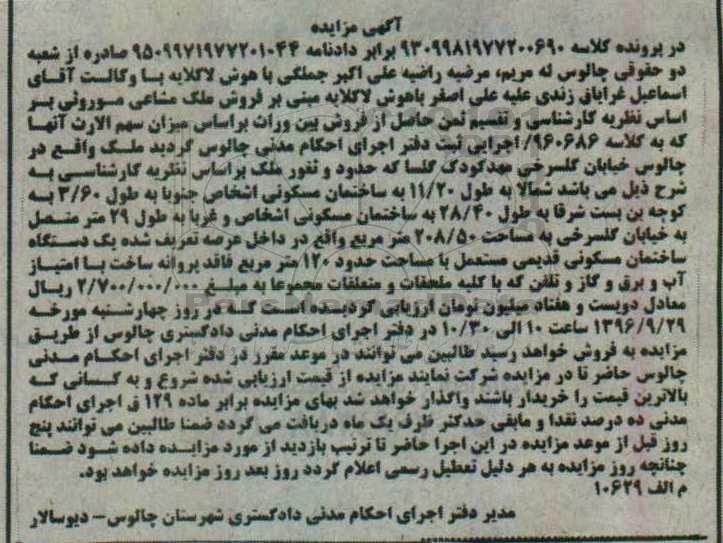 آگهی مزایده
در پرونده کلاسه ۹۳۰۹۹۸۱۹۷۷۲۰۰۶۹۰ برابر دادنامه ۹۵۰۹۹۷۱۹۷۷۲۰۱۰۴۴ صادره از شعبه
دو حقوقی چالوس له مریم، مرضیه راضیه علی اکبر جملگی با هوش لاکلایه با وکالت آقای
اسماعیل غرایاق زندی علیه علی اصغر باهوش لاکلایه مبنی بر فروش ملک مشاعی موروثی بر
اساس نظریه کارشناسی و تقسیم ثمن حاصل از فروش بین وراث براساس میزان سهم الارث آنها
که به کلاسه ۹۶۰۶۸۶/ اجرایی ثبت دفتر اجرای احکام مدنی چالوس گردید ملک واقع در
چالوس خیابان گلسرخی مهدکودک گلسا که حدود و ثغور ملک براساس نظریه کارشناسی به
شرح ذیل می باشد شمالا به طول ۱۱/۲۰ به ساختمان مسکونی اشخاص جنوبا به طول ۳/۶۰ به
کوچه بن بست شرقا به طول ۲۸/۴۰ به ساختمان مسکونی اشخاص و غربا به طول ۲۹ متر متصل
به خیابان گلسرخی به مساحت ۲۰۸/۵۰ متر مربع واقع در داخل عرصه تعریف شده یک دستگاه
ساختمان مسکونی قدیمی مستعمل با مساحت حدود ۱۲۰ متر مربع فاقد پروانه ساخت با امتیاز
آب و برق و گاز و تلفن که با کلیه ملحقات و متعلقات مجموعا به مبلغ ۲/۷۰۰/۰۰۰/۰۰۰ ریال
معادل دویست و هفتاد میلیون تومان ارزیابی گردیده است که در روز چهارشنبه مورخه
۱۳۹۶/۹/۲۹ ساعت ۱۰ الی ۱۰/۳۰ در دفتر اجرای احکام مدنی دادگستری چالوس از طریق
مزایده به فروش خواهد رسید طالبین می توانند در موعد مقرر در دفتر اجرای احکام مدنی
چالوس حاضر تا در مزایده شرکت نمایند مزایده از قیمت ارزیابی شده شروع و به کسانی که
بالاترین قیمت را خریدار باشند واگذار خواهد شد بهای مزایده برابر ماده ۱۲۹ ق اجرای احکام
مدنی ده درصد نقدا و مابقی حدکثر ظرف یک ماه دریافت می گردد ضمنا طالبین می توانند پنج
روز قبل از موعد مزایده در این اجرا حاضر تا ترتیب بازدید از مورد مزایده داده شود ضمنا
چنانچه روز مزایده به هر دلیل تعطیل رسمی اعلام گردد روز بعد روز مزایده خواهد بود.
م الف ۱۰۶۲۹
مدیر دفتر اجرای احکام مدنی دادگستری شهرستان چالوس - دیوسالار